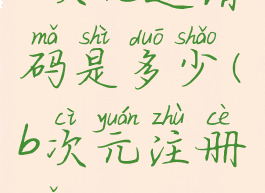 mǎ shì duō shǎo
码是多少(
cì yuán zhù cè
b次元注册